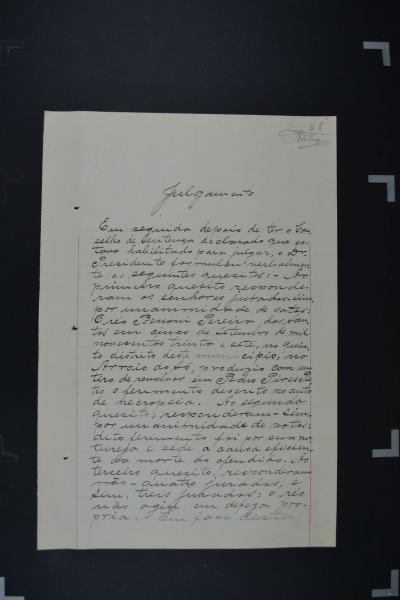 88
Julgamento
Em seguida depois de ter o Con-
selho de Sentença declarado que es-
tava habilitado para julgar, o Dr.
Presidente formulou verbalmen-
te os seguintes quesitos: - Ao
primeiro quesito responde-
ram os senhores jurados: Sim
por unanimidade de votos:
O réo Benoni Pereira dos San-
tos em cinco de setembro de mil
novecentos trinta e sete, no quin-
to distrito deste municipio, no
Arroio do Só, produzio com um
tiro de revolver em Pedro
o ferimento descrito no auto
de necropsia. Ao segundo
quesito, responderam - Sim,
por unanimidade de votos:
dito ferimento foi por sua na-
tureza e séde a causa eficien-
te da morte do ofendido. Ao
terceiro quesito, responderam
não - quatro jurados, e
sim, tres jurados: o réo
não agiu em defeza pro-
pria. Em face desta